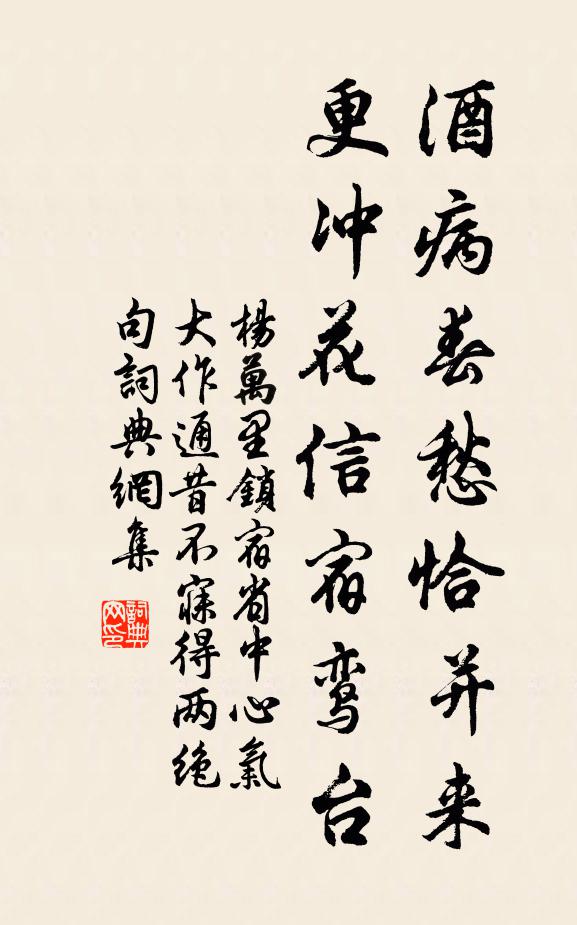 酒病春愁恰并来
更冲花信宿鸾台
楊萬里鎖宿省中心氣
大作通昔不寐得两绝
句詞典網集
詞典网印